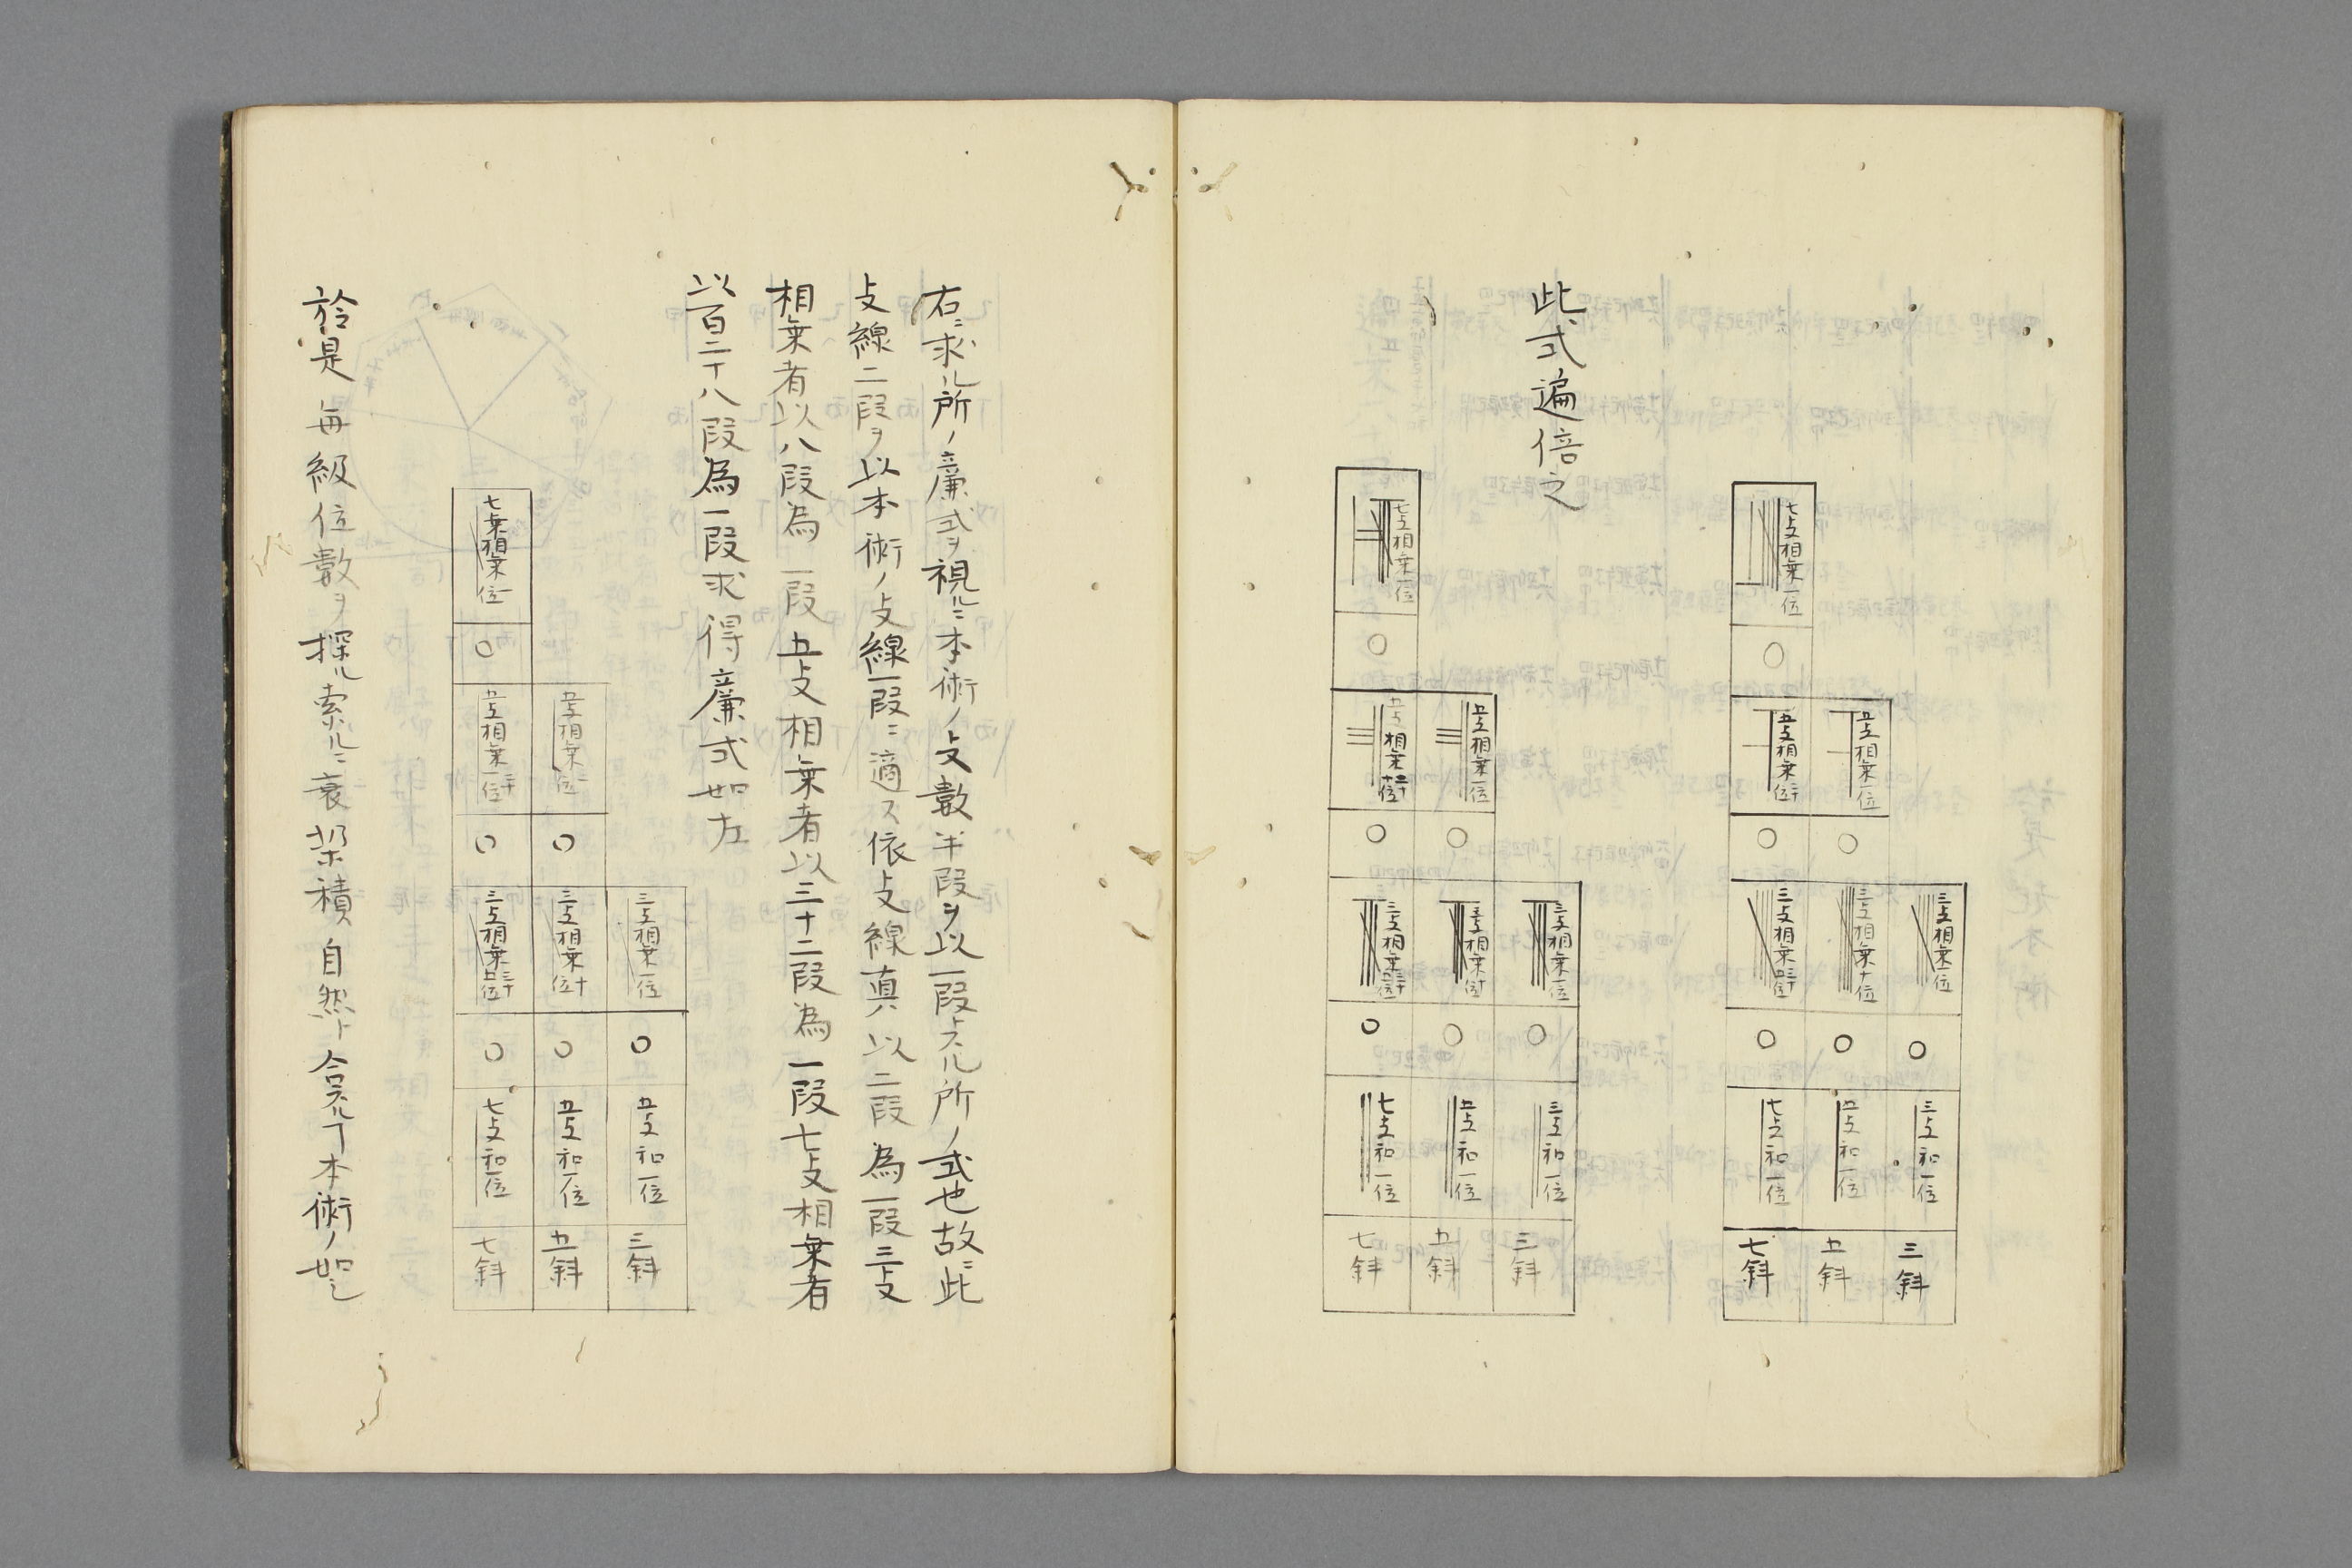 七攴相乗一位
〇
五攴相乗一位
五攴相乗一位
〇
〇
三攴相乗一位
三攴相乗十位
三攴相乗
〇
〇
〇
三攴和一位
五攴和一位
七攴和一位
三斜
五斜
七斜
此式遍倍之
七攴相乗一位
〇
五攴相乗一位
五攴相乗
〇
〇
三攴相乗一位
三攴相乗十位
三攴相乗
〇
〇
〇
三攴和一位
五攴和一位
七攴和一位
三斜
五斜
七斜
右ニ求ル所ノ廉式ヲ視ルニ本術ノ攴數半段ヲ以一段トスル所ノ式也故ニ此
攴線二段ヲ以本術ノ攴線一段ニ適ス依攴線真ハ以二段為一段三攴
相乗者以八段為一段五攴相乗者以三十二段為一段七攴相乗者
以百二十八段為一段求得廉式如左
七攴相乗一位
〇
五攴相乗
五攴相乗
〇
〇
三攴相乗一位
三攴相乗十位
三攴相乗
〇
〇
〇
五攴和一位
五攴和一位
七攴和一位
三斜
五斜
七斜
於是毎級位數ヲ探ル索ルニ衰垜積自然ト合スルヿ本術ノ如シ